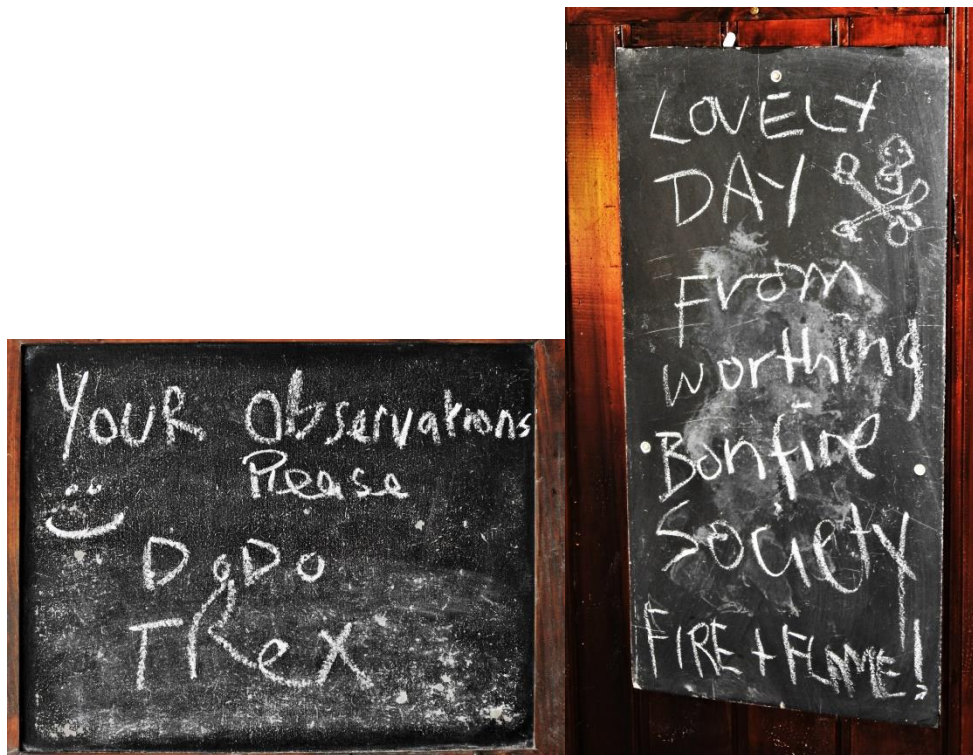 YOUR Observations
Please
DoDo
TRex
LOVELY
DAY
From
worthing
Bonfire
Society
FIRE + FLAME!